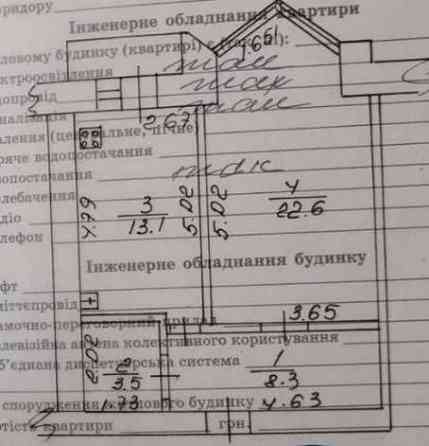 ридору
Інженерне обладнання квартири
ловому будинку (квартирі) є (так, ні):
3.65
ктроосвітлення так
допровід так
налізація так
2.67
алення (центральне, пічне)
ряче водопостачання
зопостачання так
лебачення
4.99 3 13.1 5.02 5.02 4 22.6
діо
лефон
Інженерне обладнання будинку
фт
міттєпровід
амочно-переговорний прилад 3.65
елевізійна антена колективного користування
б'єднана диспетчерська система 1 8.3
2.02 2 3.5
1.73
4.63
спорудження житлового будинку
ртість квартири грн.